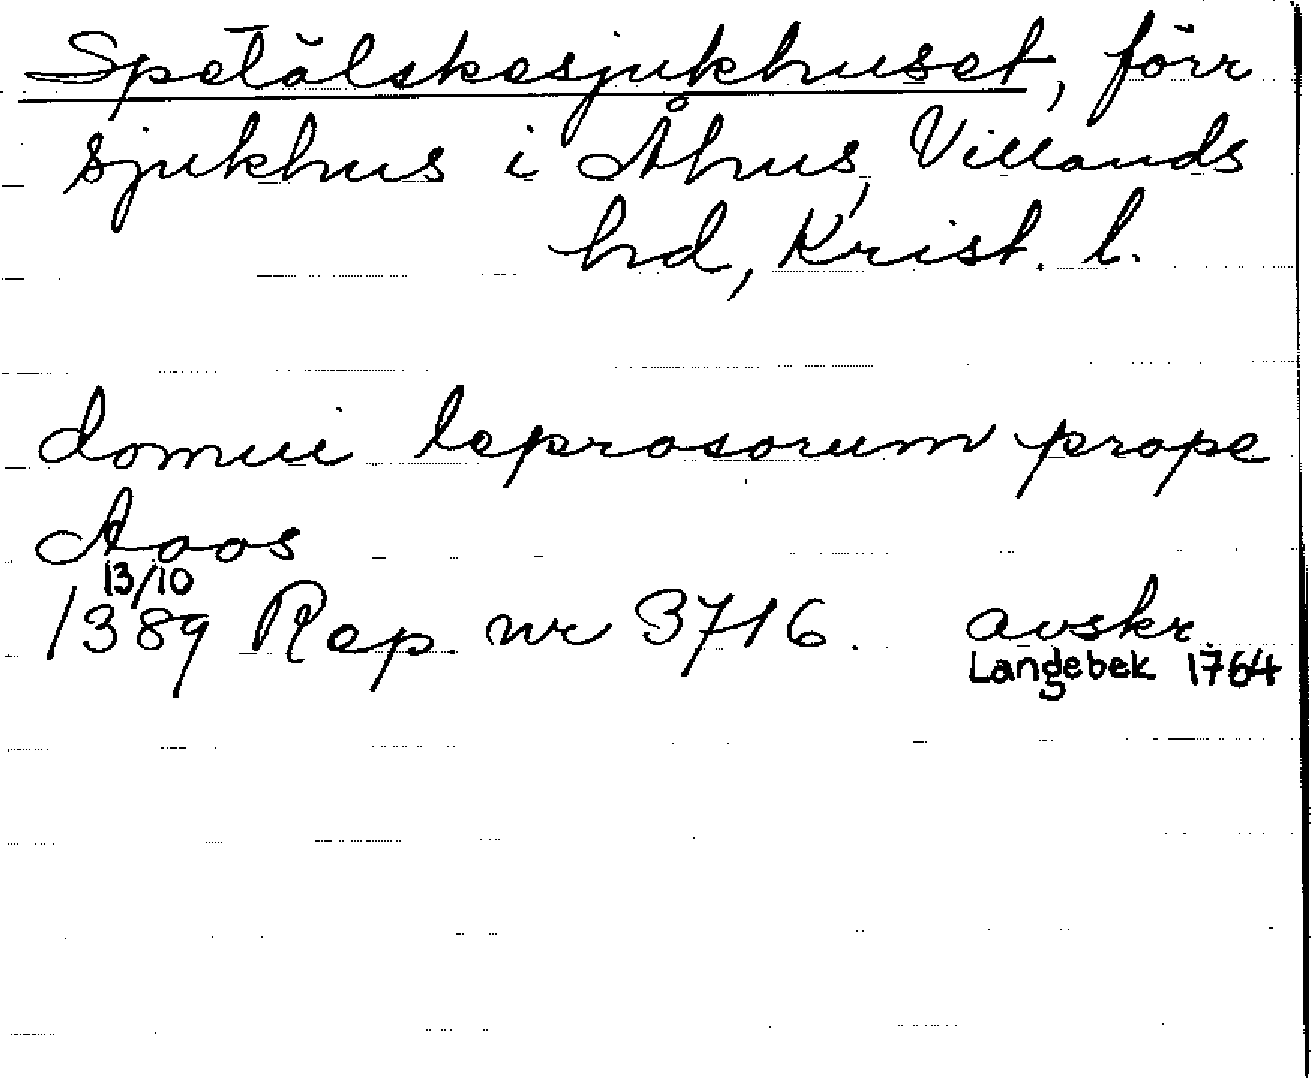 Spetälskesjukhuset, förr
sjukhus i Åhus, Villands
hd, Krist. l.
domui leprosorum prope
Aoos
13/10
1389 Rep. nr 3716. avskr.
Langebek 1764